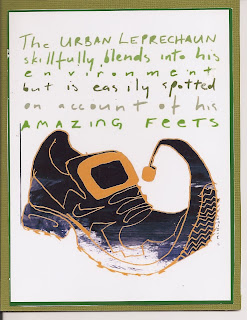 The URBAN LEPRECHAUN
skillfully blends into his
environment
but is easily spotted
on account of his
AMAZING FEETS